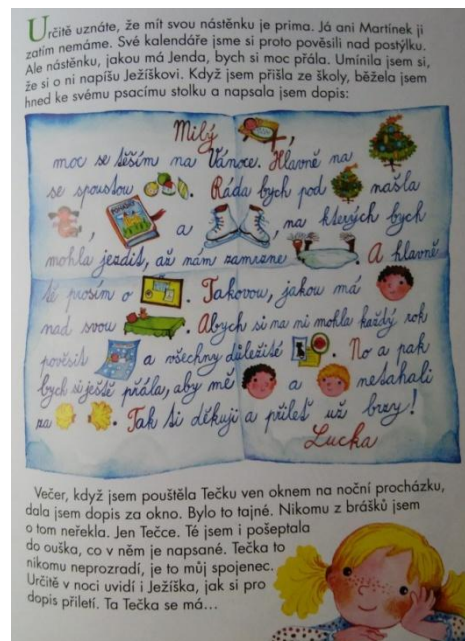 Určitě uznáte, že mít svou nástěnku je prima. Já ani Martínek ji
zatím nemáme. Své kalendáře jsme si proto pověsili nad postýlku.
Ale nástěnku, jakou má Jenda, bych si moc přála. Umínila jsem si,
že si o ni napíšu Ježíškovi. Když jsem přišla ze školy, běžela jsem
hned ke svému psacímu stolku a napsala jsem dopis:
Milý ,
moc se těším na Vánoce. Hlavně na
se spoustou . Ráda bych pod našla
, a , na kterých bych
mohla jezdit, až nám zamrzne . A hlavně
tě prosím o . Takovou, jakou má
nad svou . Abych si na ni mohla každý rok
pověsit a všechny důležité . No a pak
bych si ještě přála, aby mě a netahali
za . Tak ti děkuji a přileť už brzy!
Lucka
Večer, když jsem pouštěla Tečku ven oknem na noční procházku,
dala jsem dopis za okno. Bylo to tajné. Nikomu z brášků jsem
o tom neřekla. Jen Tečce. Té jsem i pošeptala
do ouška, co v něm je napsané. Tečka to
nikomu neprozradí, je to můj spojenec.
Určitě v noci uvidí i Ježíška, jak si pro
dopis přiletí. Ta Tečka se má...